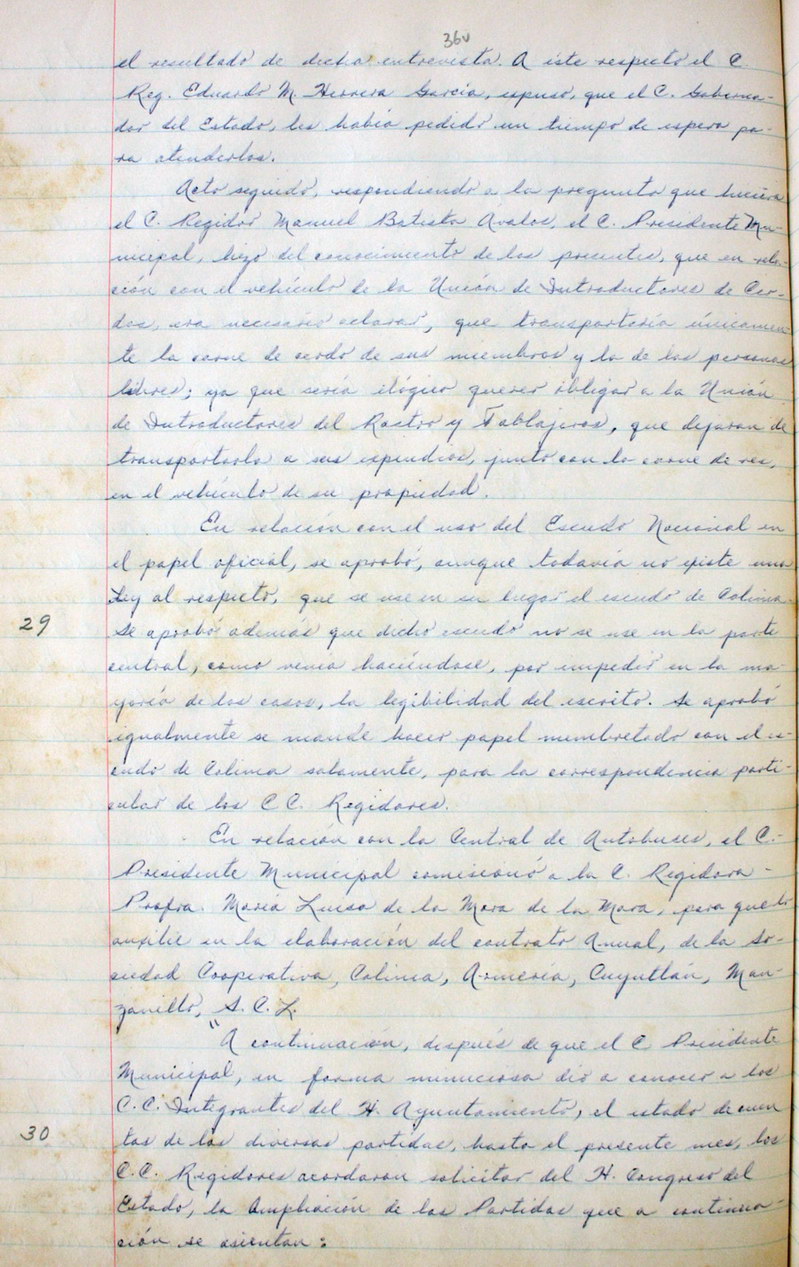 36v
el resultado de dicha entrevista. A este respecto el C.
Reg. Eduardo M. Herrera García, expuso, que el C. Goberna-
dor del Estado, les había pedido un tiempo de espera pa-
ra atenderlos.
Acto seguido, respondiendo a la pregunta que hiciera
el C. Regidor Manuel Batista Avalos, el C. Presidente Mu-
nicipal, hizo del conocimiento de los presentes, que en rela-
ción con el vehículo de la Unión de Introductores de Cer-
dos, era necesario aclarar, que transportaría únicamen-
te la carne de cerdo de sus miembros y la de las personas
libres; ya que sería ilógico querer obligar a la Unión
de Introductores del Rastro y Tablajeros, que dejaran de
transportarla a sus expendios, junto con la carne de res,
en el vehículo de su propiedad.
En relación con el uso del Escudo Nacional en
el papel oficial, se aprobó, aunque todavía no existe una
Ley al respecto, que se use en su lugar el escudo de Colima.
29 Se aprobó además que dicho escudo no se use en la parte
central, como venía haciéndose, por impedir en la ma-
yoría de los casos, la legibilidad del escrito. Se aprobó
igualmente se mande hacer papel membretado con el es-
cudo de Colima solamente, para la correspondencia parti-
cular de los C C. Regidores.
En relación con la Central de Autobuses, el C.
Presidente Municipal comisionó a la C. Regidora -
Profra. María Luisa de la Mora de la Mora, para que lo
auxilie en la elaboración del contrato Anual, de la So-
ciedad Cooperativa, Colima, Armería, Cuyutlán, Man-
zanillo, S. C. L.
"A continuación, después de que el C. Presidente
Municipal, en forma minuciosa dió a conocer a los
C.C. Integrantes del H. Ayuntamiento, el estado de cuen
30 tas de las diversas partidas, hasta el presente mes, los
C.C. Regidores acordaron solicitar del H. Congreso del
Estado, la Ampliación de las Partidas que a continua-
ción se asientan: